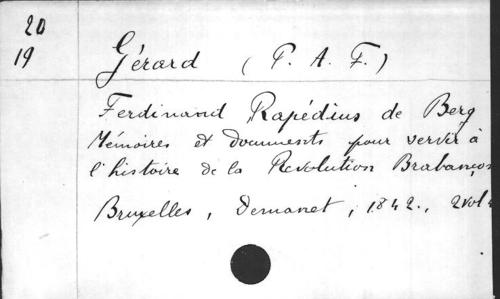 20
19
Gérard (P. A. F.)
Ferdinand Rapédius de Berg
Mémoires et documents pour servir à
l'histoire de la Révolution Brabançon
Bruxelles, Demanet, 1842., 2 vol